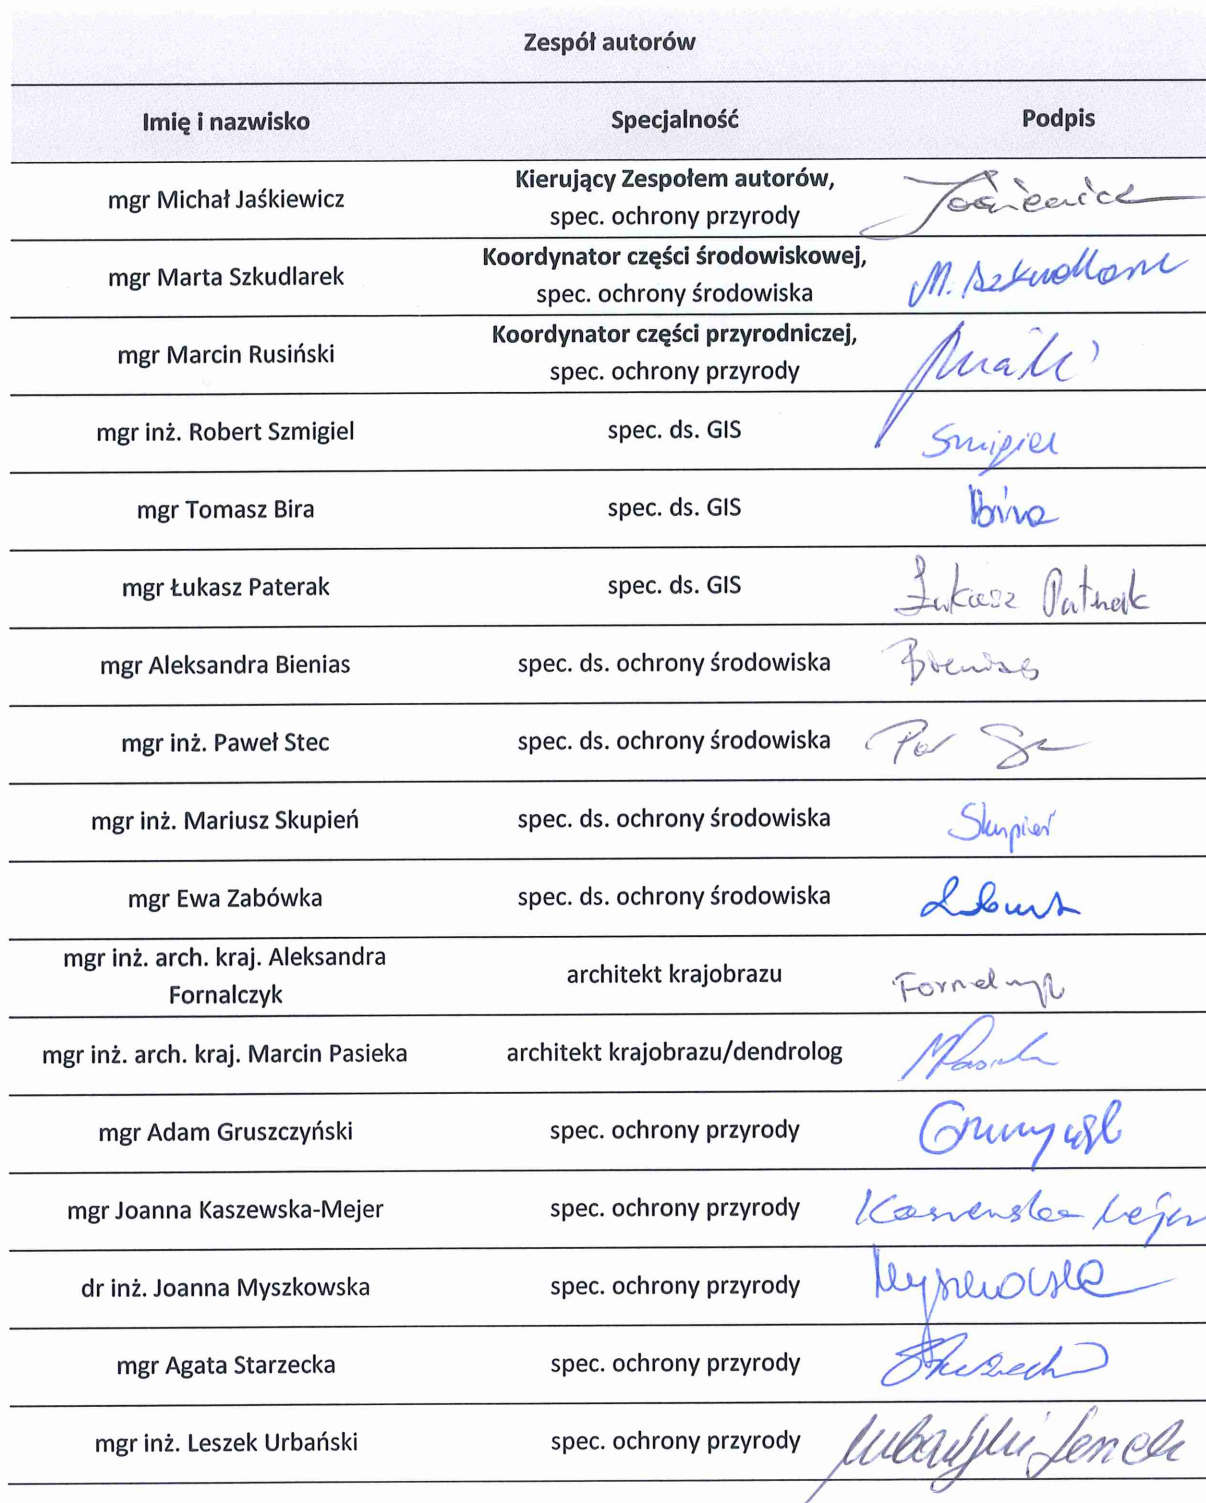 Zespół autorów
Imię i nazwisko Specjalność Podpis
mgr Michał Jaśkiewicz Kierujący Zespołem autorów,
spec. ochrony przyrody
mgr Marta Szkudlarek Koordynator części środowiskowej,
spec. ochrony środowiska M. Szkudlarek
mgr Marcin Rusiński Koordynator części przyrodniczej,
spec. ochrony przyrody
mgr inż. Robert Szmigiel spec. ds. GIS
mgr Tomasz Bira spec. ds. GIS Bira
mgr Łukasz Paterak spec. ds. GIS Łukasz Paterak
mgr Aleksandra Bienias spec. ds. ochrony środowiska Bienias
mgr inż. Paweł Stec spec. ds. ochrony środowiska
mgr inż. Mariusz Skupień spec. ds. ochrony środowiska Skupień
mgr Ewa Zabówka spec. ds. ochrony środowiska
mgr inż. arch. kraj. Aleksandra
Fornalczyk architekt krajobrazu
mgr inż. arch. kraj. Marcin Pasieka architekt krajobrazu/dendrolog
mgr Adam Gruszczyński spec. ochrony przyrody
mgr Joanna Kaszewska-Mejer spec. ochrony przyrody Kaszewska Mejer
dr inż. Joanna Myszkowska spec. ochrony przyrody Myszkowska
mgr Agata Starzecka spec. ochrony przyrody
mgr inż. Leszek Urbański spec. ochrony przyrody Urbański Leszek